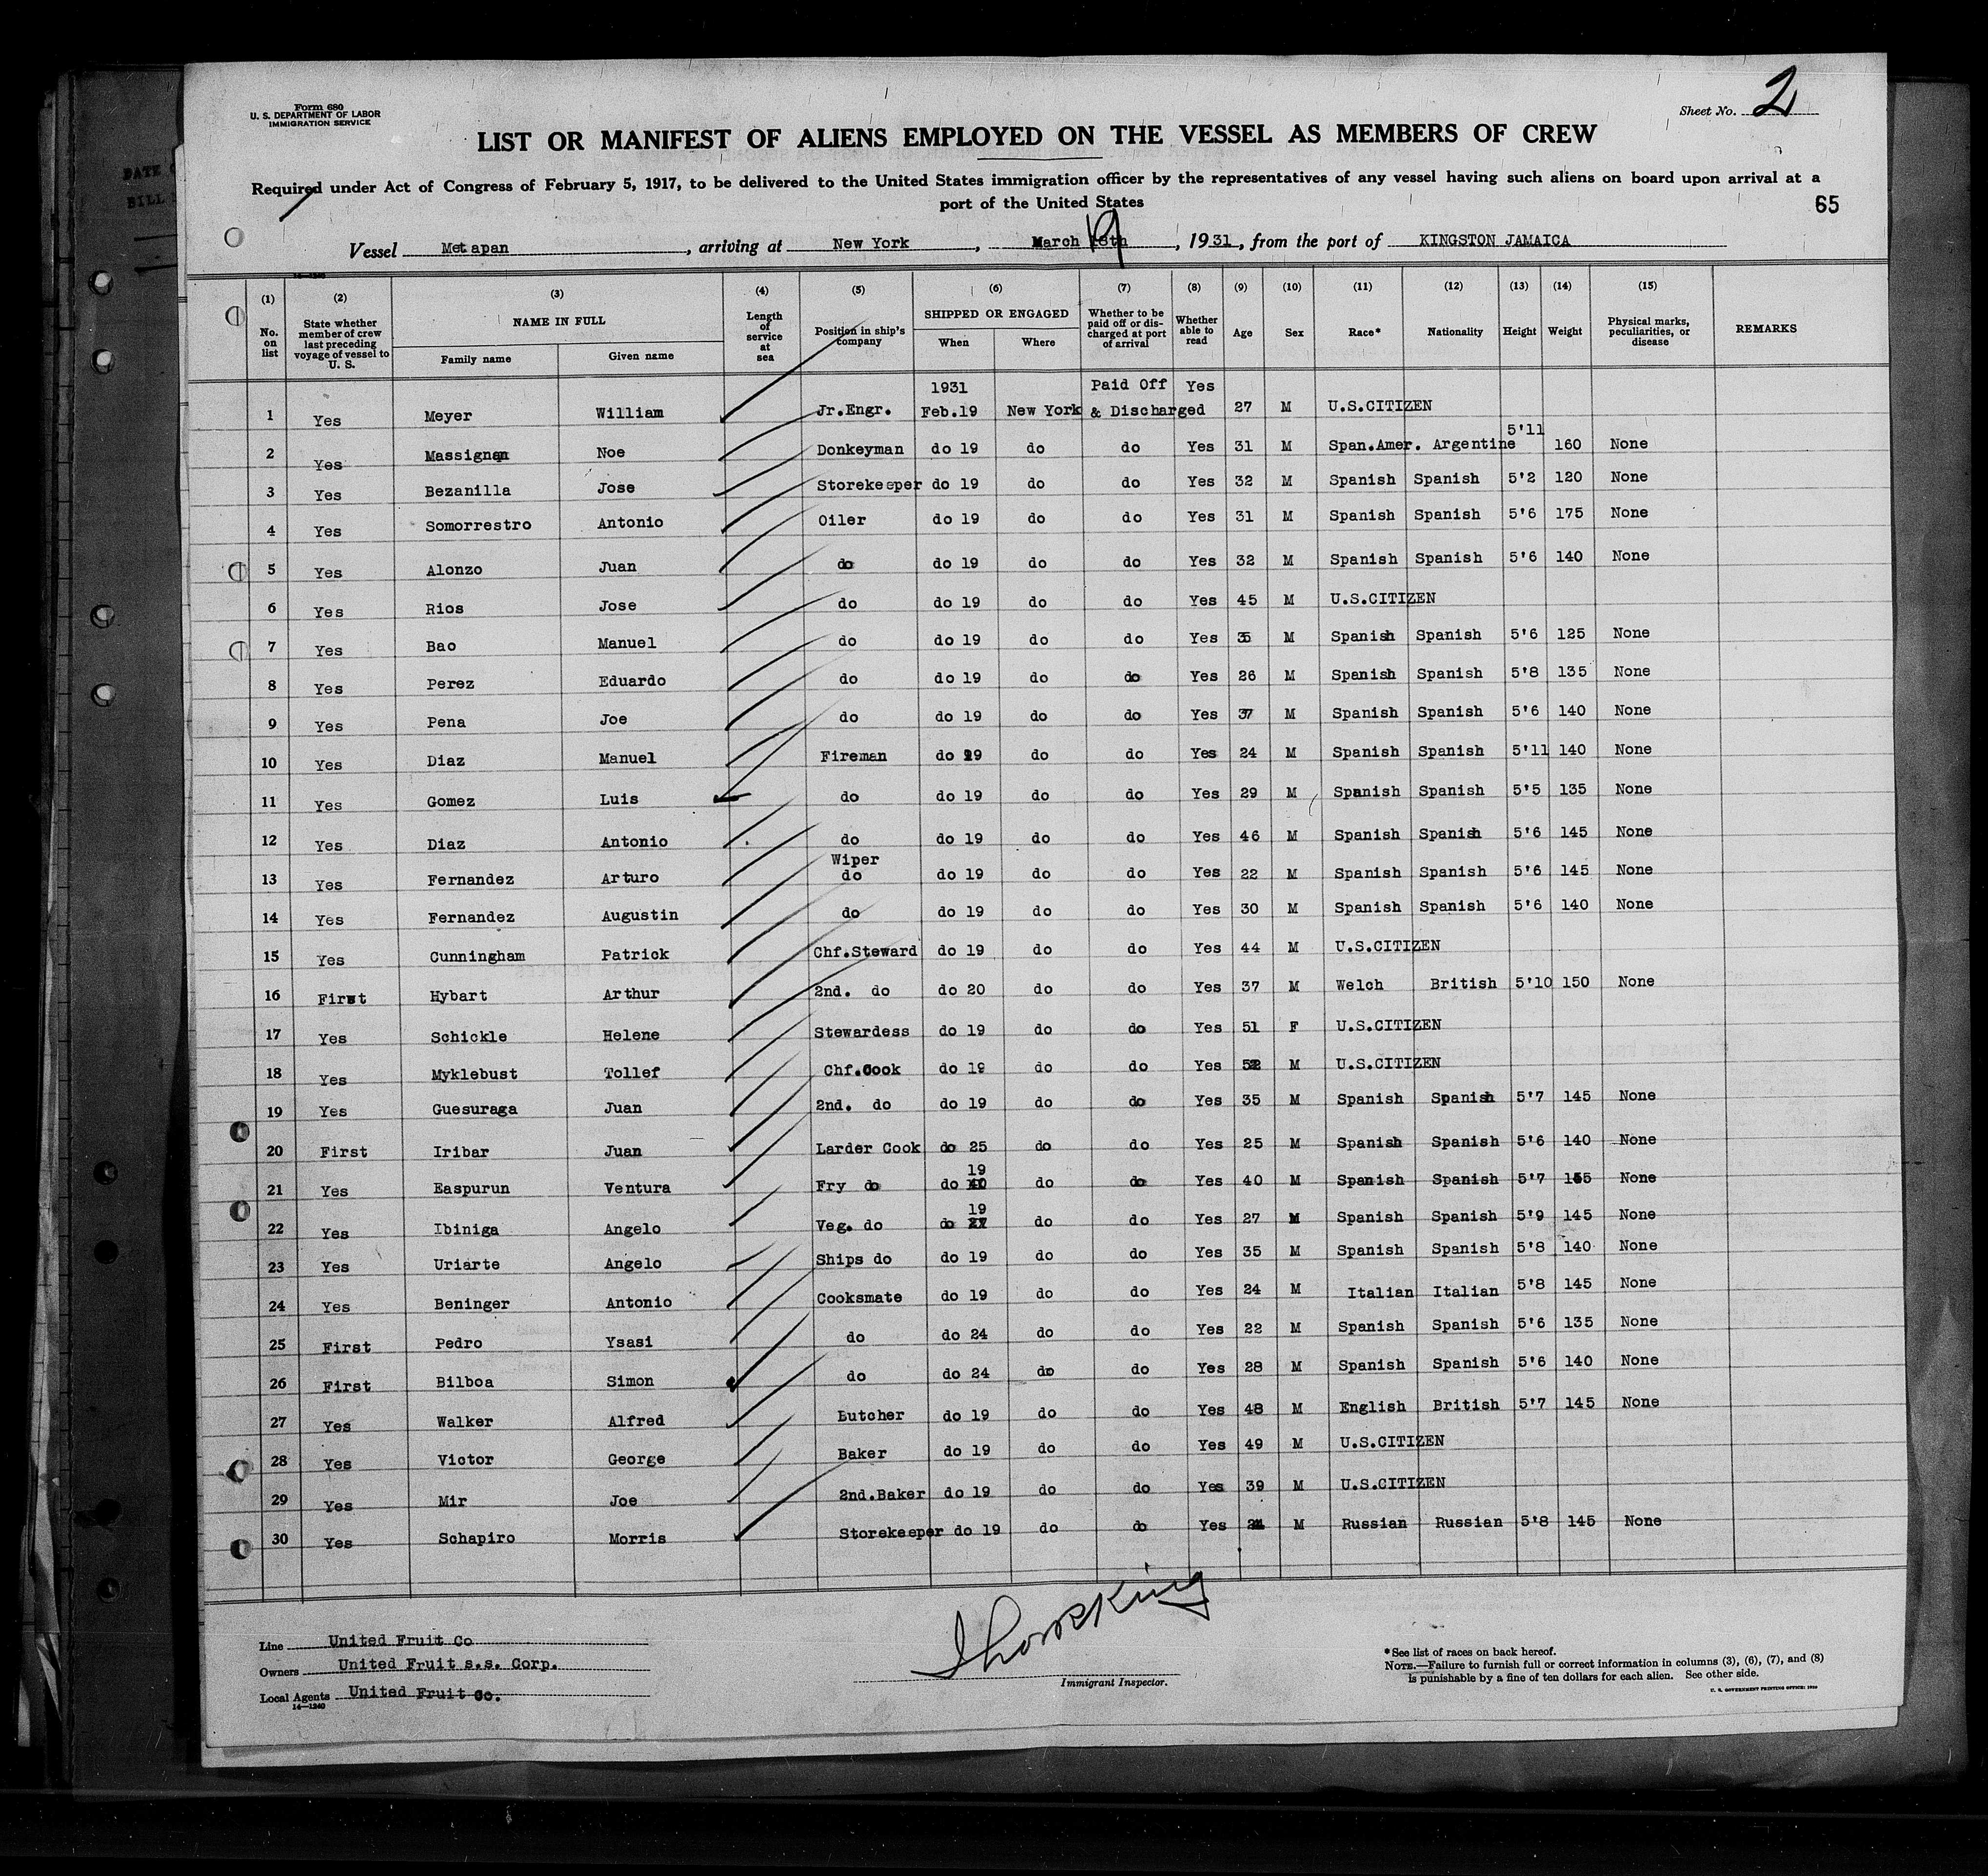 Form 680
U. S. DEPARTMENT OF LABOR
IMMIGRATION SERVICE
Sheet No. 2
LIST OR MANIFEST OF ALIENS EMPLOYED ON THE VESSEL AS MEMBERS OF CREW
Required under Act of Congress of February 5, 1917, to be delivered to the United States immigration officer by the representatives of any vessel having such aliens on board upon arrival at a
port of the United States
65
Vessel Metapan, arriving at New York, March 19, 1931, from the port of KINGSTON JAMAICA
(1) No. on list (2) State whether member of crew last preceding voyage of vessel to U. S. (3) NAME IN FULL Family name Given name (4) Length of service at sea (5) Position in ship's company (6) SHIPPED OR ENGAGED When Where (7) Whether to be paid off or discharged at port of arrival (8) Whether able to read (9) Age (10) Sex (11) Race* (12) Nationality (13) Height (14) Weight (15) Physical marks, peculiarities, or disease REMARKS
1931 Paid Off Yes
1 Yes Meyer William Jr.Engr. Feb.19 New York & Discharged 27 M U.S.CITIZEN
2 Yes Massignan Noe Donkeyman do 19 do do Yes 31 M Span.Amer. Argentine 5'11 160 None
3 Yes Bezanilla Jose Storekeeper do 19 do do Yes 32 M Spanish Spanish 5'2 120 None
4 Yes Somorrestro Antonio Oiler do 19 do do Yes 31 M Spanish Spanish 5'6 175 None
5 Yes Alonzo Juan do do 19 do do Yes 32 M Spanish Spanish 5'6 140 None
6 Yes Rios Jose do do 19 do do Yes 45 M U.S.CITIZEN
7 Yes Bao Manuel do do 19 do do Yes 35 M Spanish Spanish 5'6 125 None
8 Yes Perez Eduardo do do 19 do do Yes 26 M Spanish Spanish 5'8 135 None
9 Yes Pena Joe do do 19 do do Yes 37 M Spanish Spanish 5'6 140 None
10 Yes Diaz Manuel Fireman do 19 do do Yes 24 M Spanish Spanish 5'11 140 None
11 Yes Gomez Luis do do 19 do do Yes 29 M Spanish Spanish 5'5 135 None
12 Yes Diaz Antonio do do 19 do do Yes 46 M Spanish Spanish 5'6 145 None
Wiper
13 Yes Fernandez Arturo do do 19 do do Yes 22 M Spanish Spanish 5'6 145 None
14 Yes Fernandez Augustin do do 19 do do Yes 30 M Spanish Spanish 5'6 140 None
15 Yes Cunningham Patrick Chf.Steward do 19 do do Yes 44 M U.S.CITIZEN
16 First Hybart Arthur 2nd. do do 20 do do Yes 37 M Welch British 5'10 150 None
17 Yes Schickle Helene Stewardess do 19 do do Yes 51 F U.S.CITIZEN
18 Yes Myklebust Tollef Chf.Cook do 19 do do Yes 52 M U.S.CITIZEN
19 Yes Guesuraga Juan 2nd. do do 19 do do Yes 35 M Spanish Spanish 5'7 145 None
20 First Iribar Juan Larder Cook do 25 do do Yes 25 M Spanish Spanish 5'6 140 None
21 Yes Easpurun Ventura Fry do do 19 do do Yes 40 M Spanish Spanish 5'7 155 None
22 Yes Ibiniga Angelo Veg. do do 19 do do Yes 27 M Spanish Spanish 5'9 145 None
23 Yes Uriarte Angelo Ships do do 19 do do Yes 35 M Spanish Spanish 5'8 140 None
24 Yes Beninger Antonio Cooksmate do 19 do do Yes 24 M Italian Italian 5'8 145 None
25 First Pedro Ysasi do do 24 do do Yes 22 M Spanish Spanish 5'6 135 None
26 First Bilboa Simon do do 24 do do Yes 28 M Spanish Spanish 5'6 140 None
27 Yes Walker Alfred Butcher do 19 do do Yes 48 M English British 5'7 145 None
28 Yes Victor George Baker do 19 do do Yes 49 M U.S.CITIZEN
29 Yes Mir Joe 2nd.Baker do 19 do do Yes 39 M U.S.CITIZEN
30 Yes Schapiro Morris Storekeeper do 19 do do Yes M Russian Russian 5'8 145 None
Line United Fruit Co
Owners United Fruit s.s. Corp.
Local Agents United Fruit Co.
14—1240
Immigrant Inspector.
*See list of races on back hereof.
NOTE.—Failure to furnish full or correct information in columns (3), (6), (7), and (8)
is punishable by a fine of ten dollars for each alien. See other side.
U. S. GOVERNMENT PRINTING OFFICE: 1930